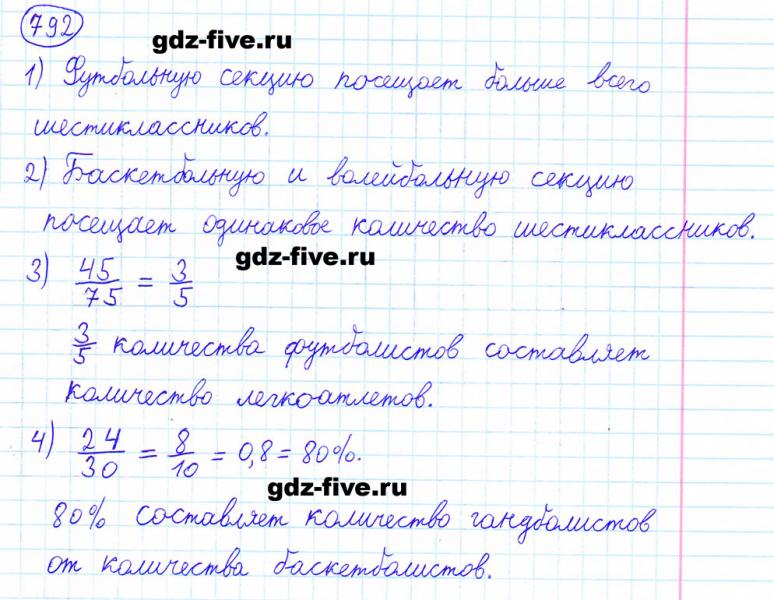 792
gdz-five.ru
1) Футбольную секцию посещает больше всего
шестиклассников.
2) Баскетбольную и волейбольную секцию
посещает одинаковое количество шестиклассников.
gdz-five.ru
3) 45/75 = 3/5
3/5 количества футболистов составляет
количество легкоатлетов.
4) 24/30 = 8/10 = 0,8 = 80%.
gdz-five.ru
80% составляет количество гандболистов
от количества баскетболистов.